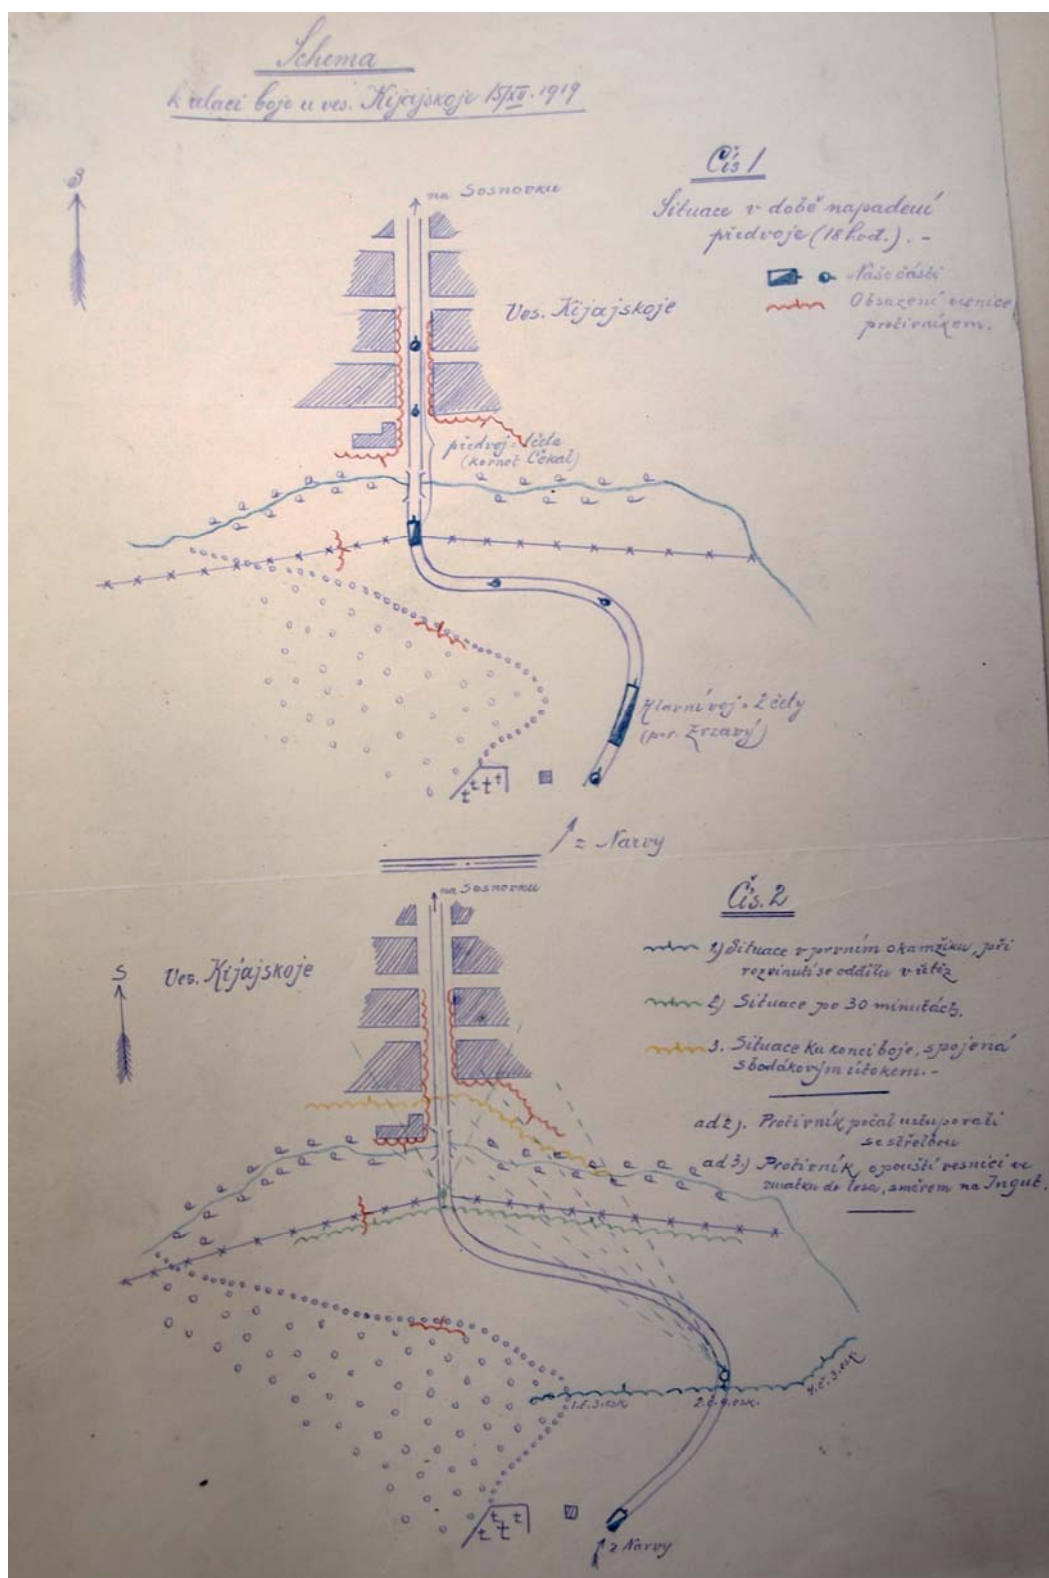 Schema
k relaci boje u ves. Kijajskoje 15/XII. 1919
Čís 1
S
na Sosnovku
Situace v době napadení
předvoje (18 hod.). -
Naše části
Obsazení vesnice
protivníkem.
Ves. Kijajskoje
předvoj = četa
(kornet Čekal)
Hlavní voj = 2 čety
(por. Zrzavý)
t t t
z Narvy
na Sosnovku
Čís. 2
S
Ves. Kijajskoje
1) Situace v prvním okamžiku, při
rozvinutí se oddílu v řetěz
2) Situace po 30 minutách.
3. Situace ku konci boje, spojená
s bodákovým útokem. -
ad 2). Protivník počal ustupovati
se střelbou
ad 3.) Protivník opouští vesnici ve
zmatku do lesa, směrem na Ingut.
1.č. 3. esk.
2.č. 4. esk.
4.č. 3. esk.
t t t
z Narvy